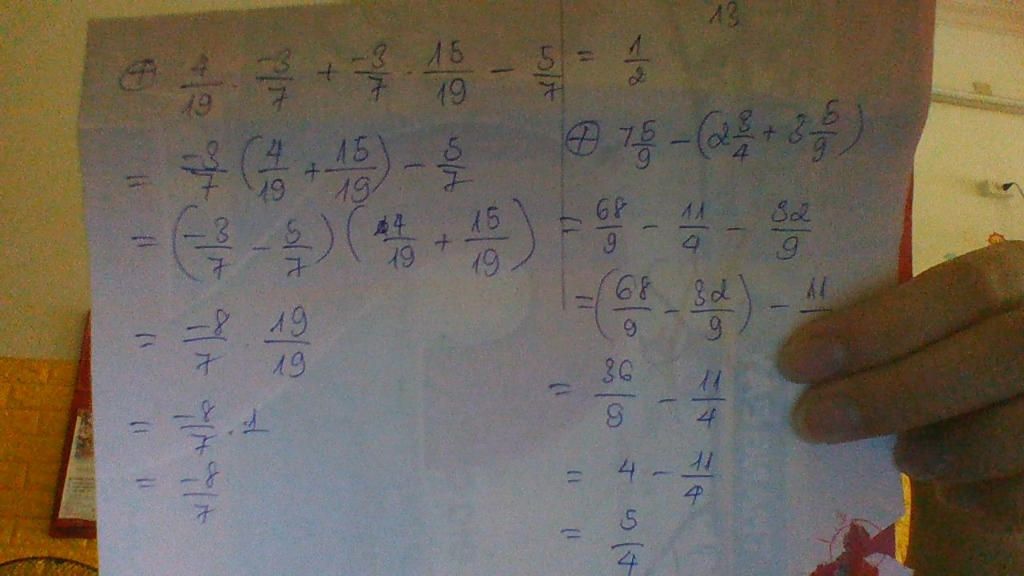 13
⊕ 4/19 . -3/7 + -3/7 . 15/19 - 5/7
= -3/7 (4/19 + 15/19) - 5/7
= (-3/7 - 5/7) (4/19 + 15/19)
= -8/7 . 19/19
= -8/7 . 1
= -8/7
= 1/2
⊕ 7 5/9 - (2 3/4 + 3 5/9)
= 68/9 - 11/4 - 32/9
= (68/9 - 32/9) - 11
= 36/9 - 11/4
= 4 - 11/4
= 5/4